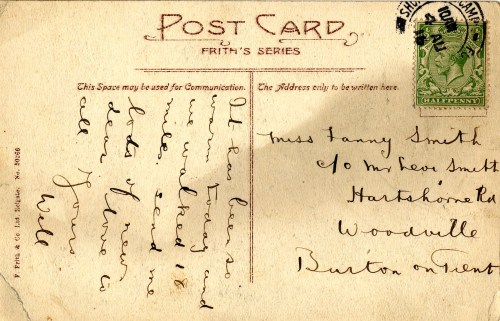 POST CARD
FRITH'S SERIES
This Space may be used for Communication.
The Address only to be written here.
It has been so
warm today and
we walked 18
miles. send me
lods of new
dear love to
all Yours
Will
Miss Fanny Smith
c/o Mr Levi Smith
Hartshorne Rd
Woodville
Burton on Trent
HALFPENNY
F. Frith & Co. Ltd. Reigate. No.